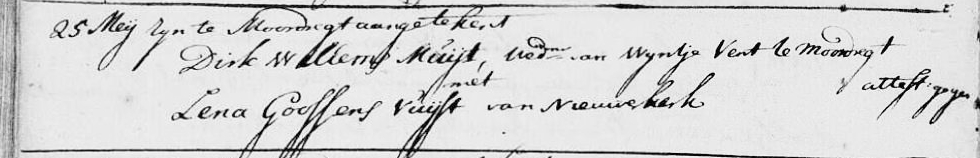 25 Meij zyn te Moordregt aangetekent
Dirk Willems Muijt, Wedr van Wyntje Vent te Moordregt
met
Lena Goossens Vuijst van Nieuwekerk
attest: gegev